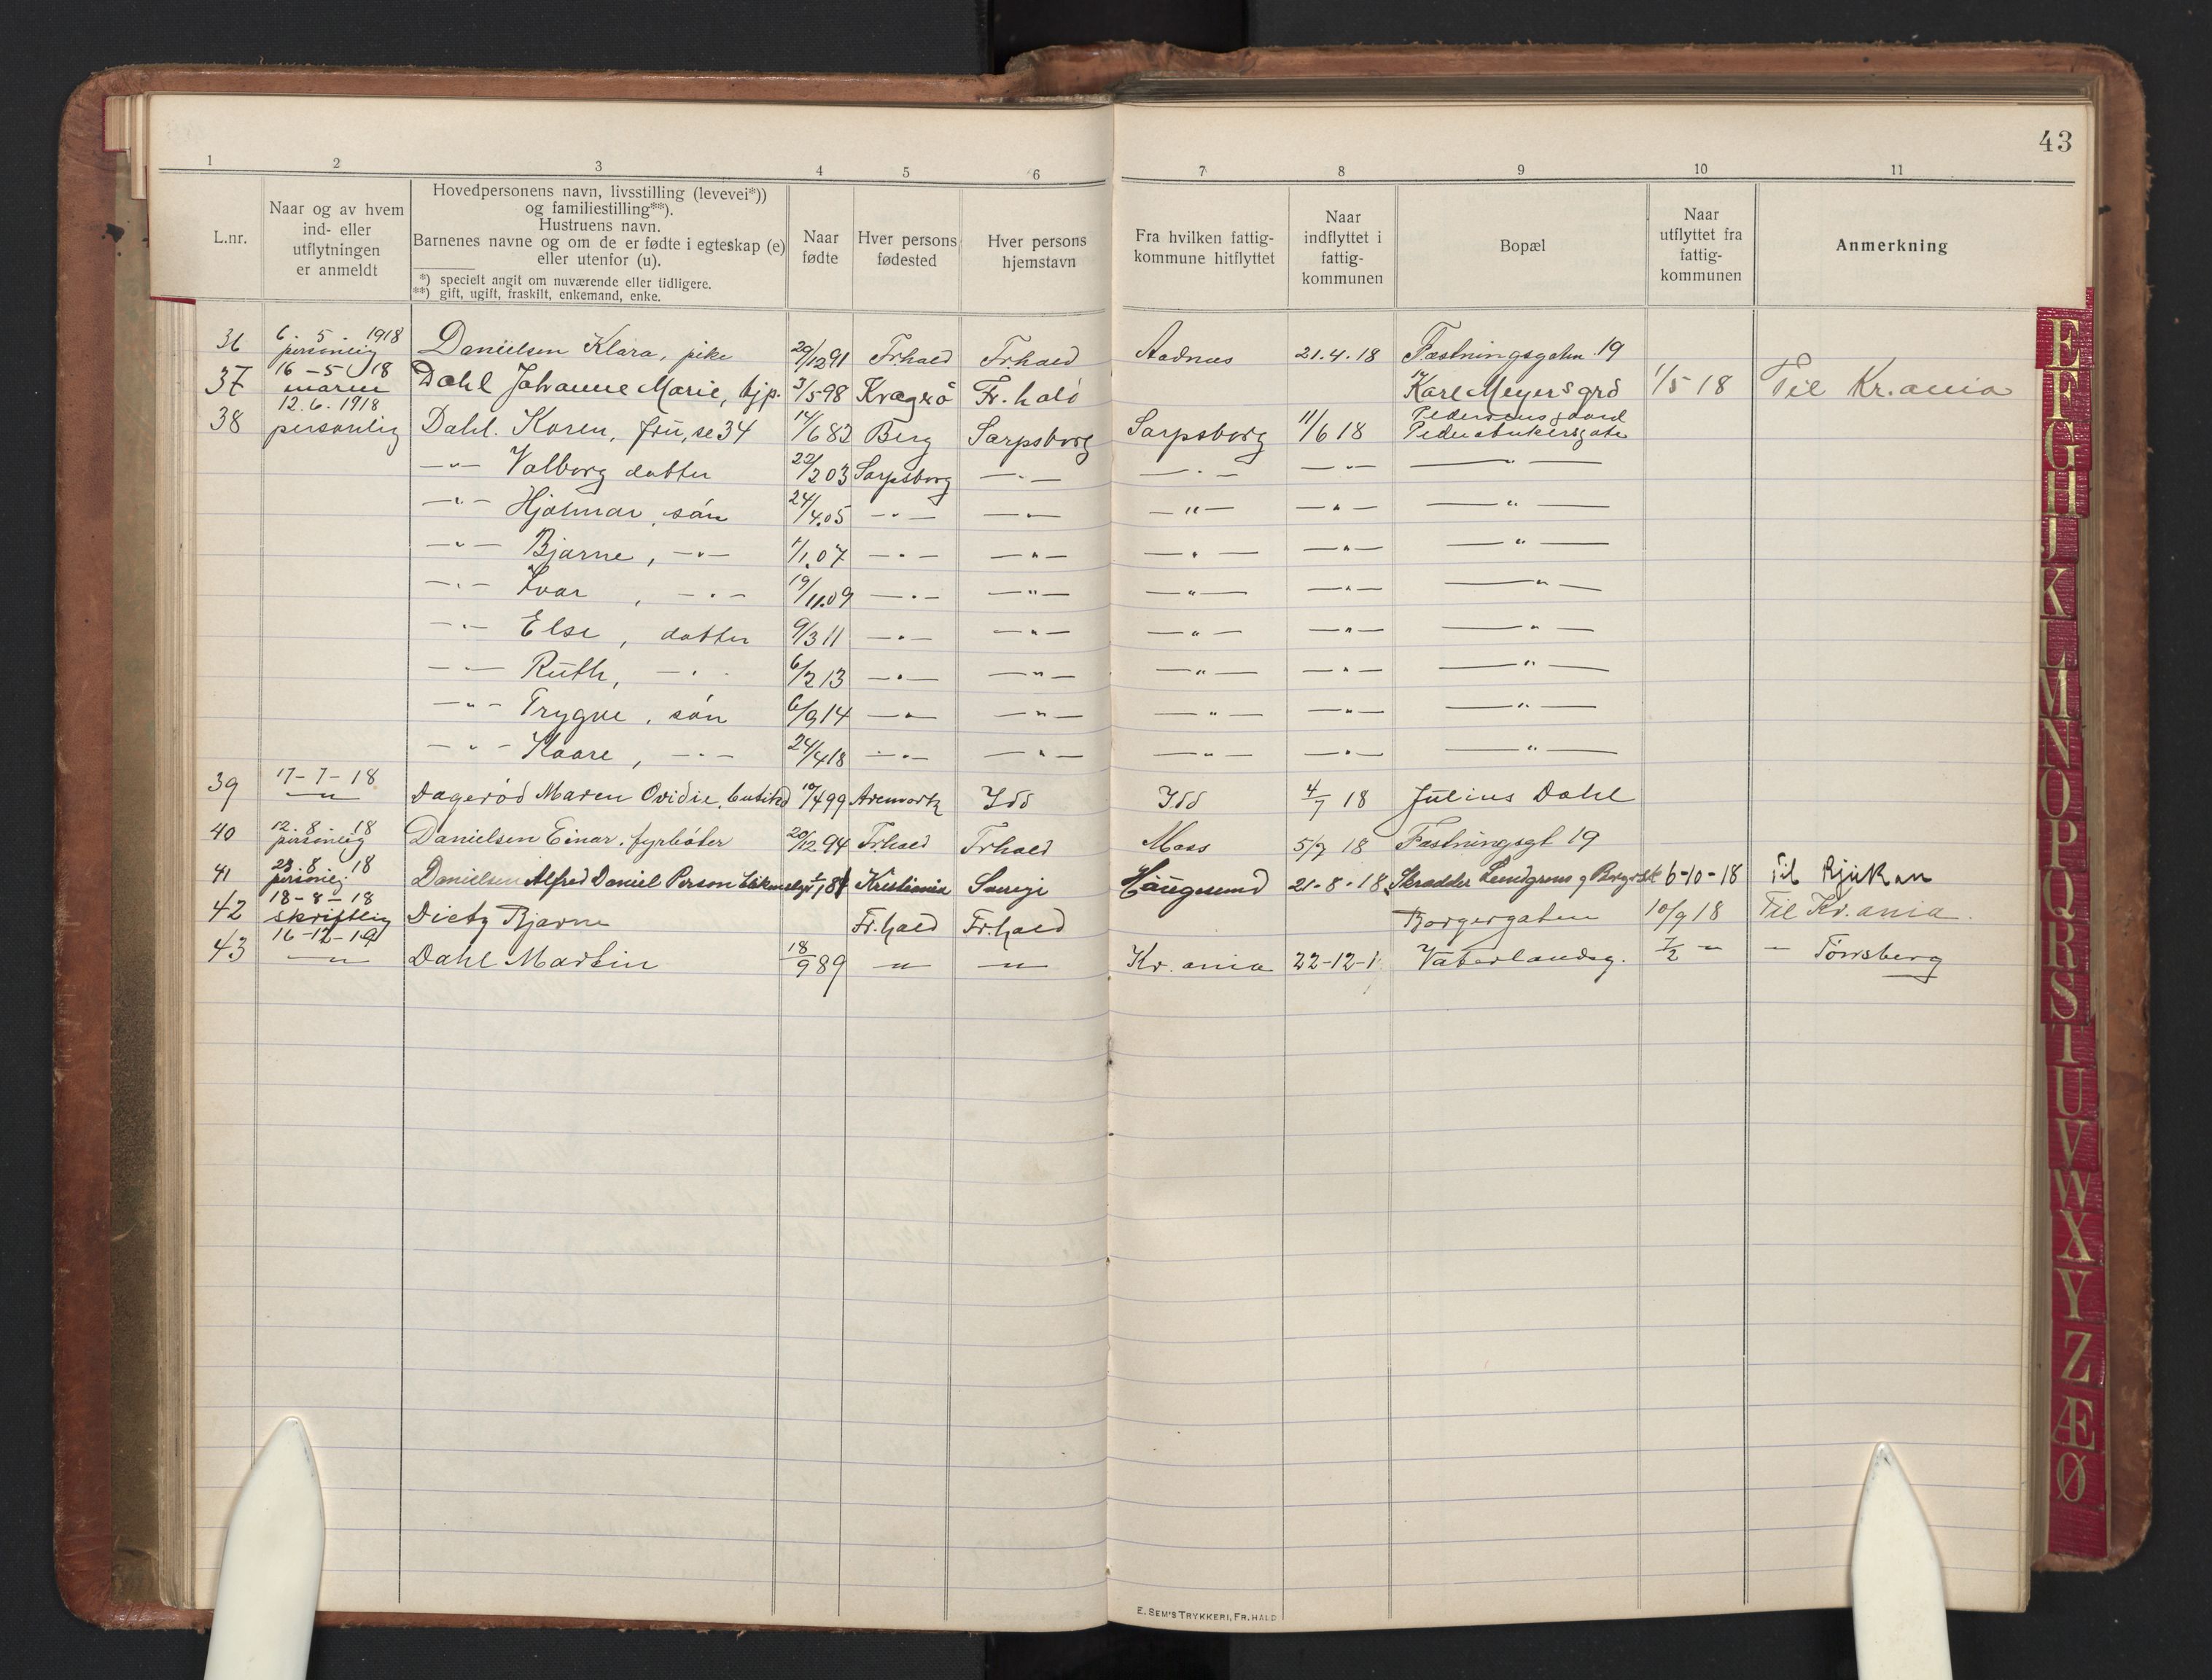 43
1 2 3 4 5 6 7 8 9 10 11
L.nr.
Naar og av hvem
ind- eller
utflytningen
er anmeldt
Hovedpersonens navn, livsstilling (levevei*))
og familiestilling**).
Hustruens navn.
Barnenes navne og om de er fødte i egteskap (e)
eller utenfor (u).
*) specielt angit om nuværende eller tidligere.
**) gift, ugift, fraskilt, enkemand, enke.
Naar
fødte
Hver persons
fødested
Hver persons
hjemstavn
Fra hvilken fattig-
kommune hitflyttet
Naar
indflyttet i
fattig-
kommunen
Bopæl
Naar
utflyttet fra
fattig-
kommunen
Anmerkning
36 6. 5. 1918 personlig Danielsen Klara, pike 29/12 91 Fr.hald Fr.hald Aadnes 21.4.18 Fæstningsgaten 19
37 16-5 18 Dahl Johanne Marie, hjp. 3/5 98 Kragerö Fr.hald Karl Meyers grd 1/5 18 Til Kr.ania
38 12.6.1918 personlig Dahl. Karen, fru, se 34 14/6 82 Berg Sarpsborg Sarpsborg 11/6 18 Pedersens gaard
—"— Valborg datter 22/2 03 Sarpsborg —"— —"— —"— —"—
—"— Hjalmar, sön 24/4.05 —"— —"— —"— —"— —"—
—"— Bjarne, —"— 1/1.07 —"— —"— —"— —"— —"—
—"— Ivar, —"— 19/11.09 —"— —"— —"— —"— —"—
—"— Else, datter 9/3 11 —"— —"— —"— —"— —"—
—"— Ruth, —"— 6/2 13 —"— —"— —"— —"— —"—
—"— Trygve, sön 6/9 14 —"— —"— —"— —"— —"—
—"— Kaare, —"— 24/4 18 —"— —"— —"— —"— —"—
39 17-7-18 —"— Dageröd Maren Ovidie, 10/4 99 Aremark Idd Idd 4/7 18 Julius Dahl
40 12. 8 18 personlig Danielsen Einar, fyrböter 20/12 94 Fr.hald Fr.hald Moss 5/7 18 Fæstningsgt 19
41 23. 8. 18 personlig Danielsen Alfred Daniel Person Kristiania Sverige Haugesund 21-8-18 Skrædder Lundgrens 6-10-18 Til Rjukan
42 18-8-18 skriftlig Dietz Bjarne Fr.hald Fr.hald Borgergaten 10/9 18 Til Kr.ania.
43 16-12-19 —"— Dahl Martin 18/9 89 —"— —"— Kr.ania 22-12-1 Vaterlandsg. 7/2 —"— — Tönsberg
E. SEM'S TRYKKERI, FR.HALD
E
F
G
H
J
K
L
M
N
O
P
Q
R
S
T
U
V
W
X
Y
Z
Æ
Ø